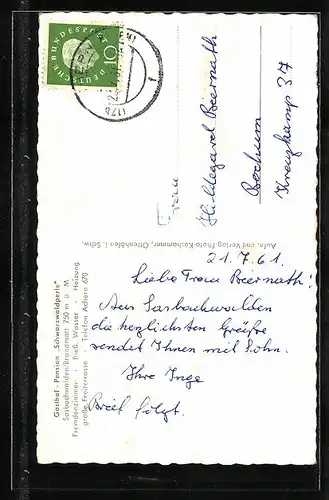 Gasthof - Pension „Schwarzwaldperle"
Sasbachwalden/Brandmatt 750 m ü. M
Fremdenzimmer - Fließ. Wasser - Heizung
große Freiterrasse - Telefon Achern 670
21.7.61.
Liebe Frau Biernath!
Aus Sasbachwalden
die herzlichsten Grüße
sendet Ihnen mit Sohn.
Ihre Inge
Brief folgt.
Aufn. und Verlag Photo-Kashammer, Ottenhöfen i. Schw.
DEUTSCHE BUNDESPOST
10
(17b
Frau
Hildegard Biernath
Bochum